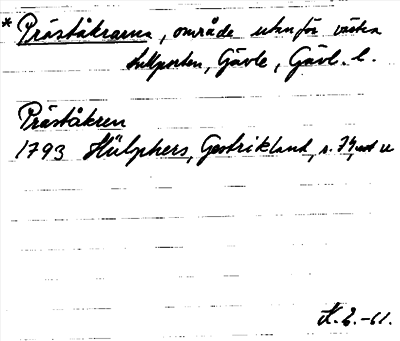 * Präståkrarna, område utanför västra
tullporten, Gävle, Gävl. l.
Präståkren
1793 Hülphers, Gestrikland, s.
K.E.-61.